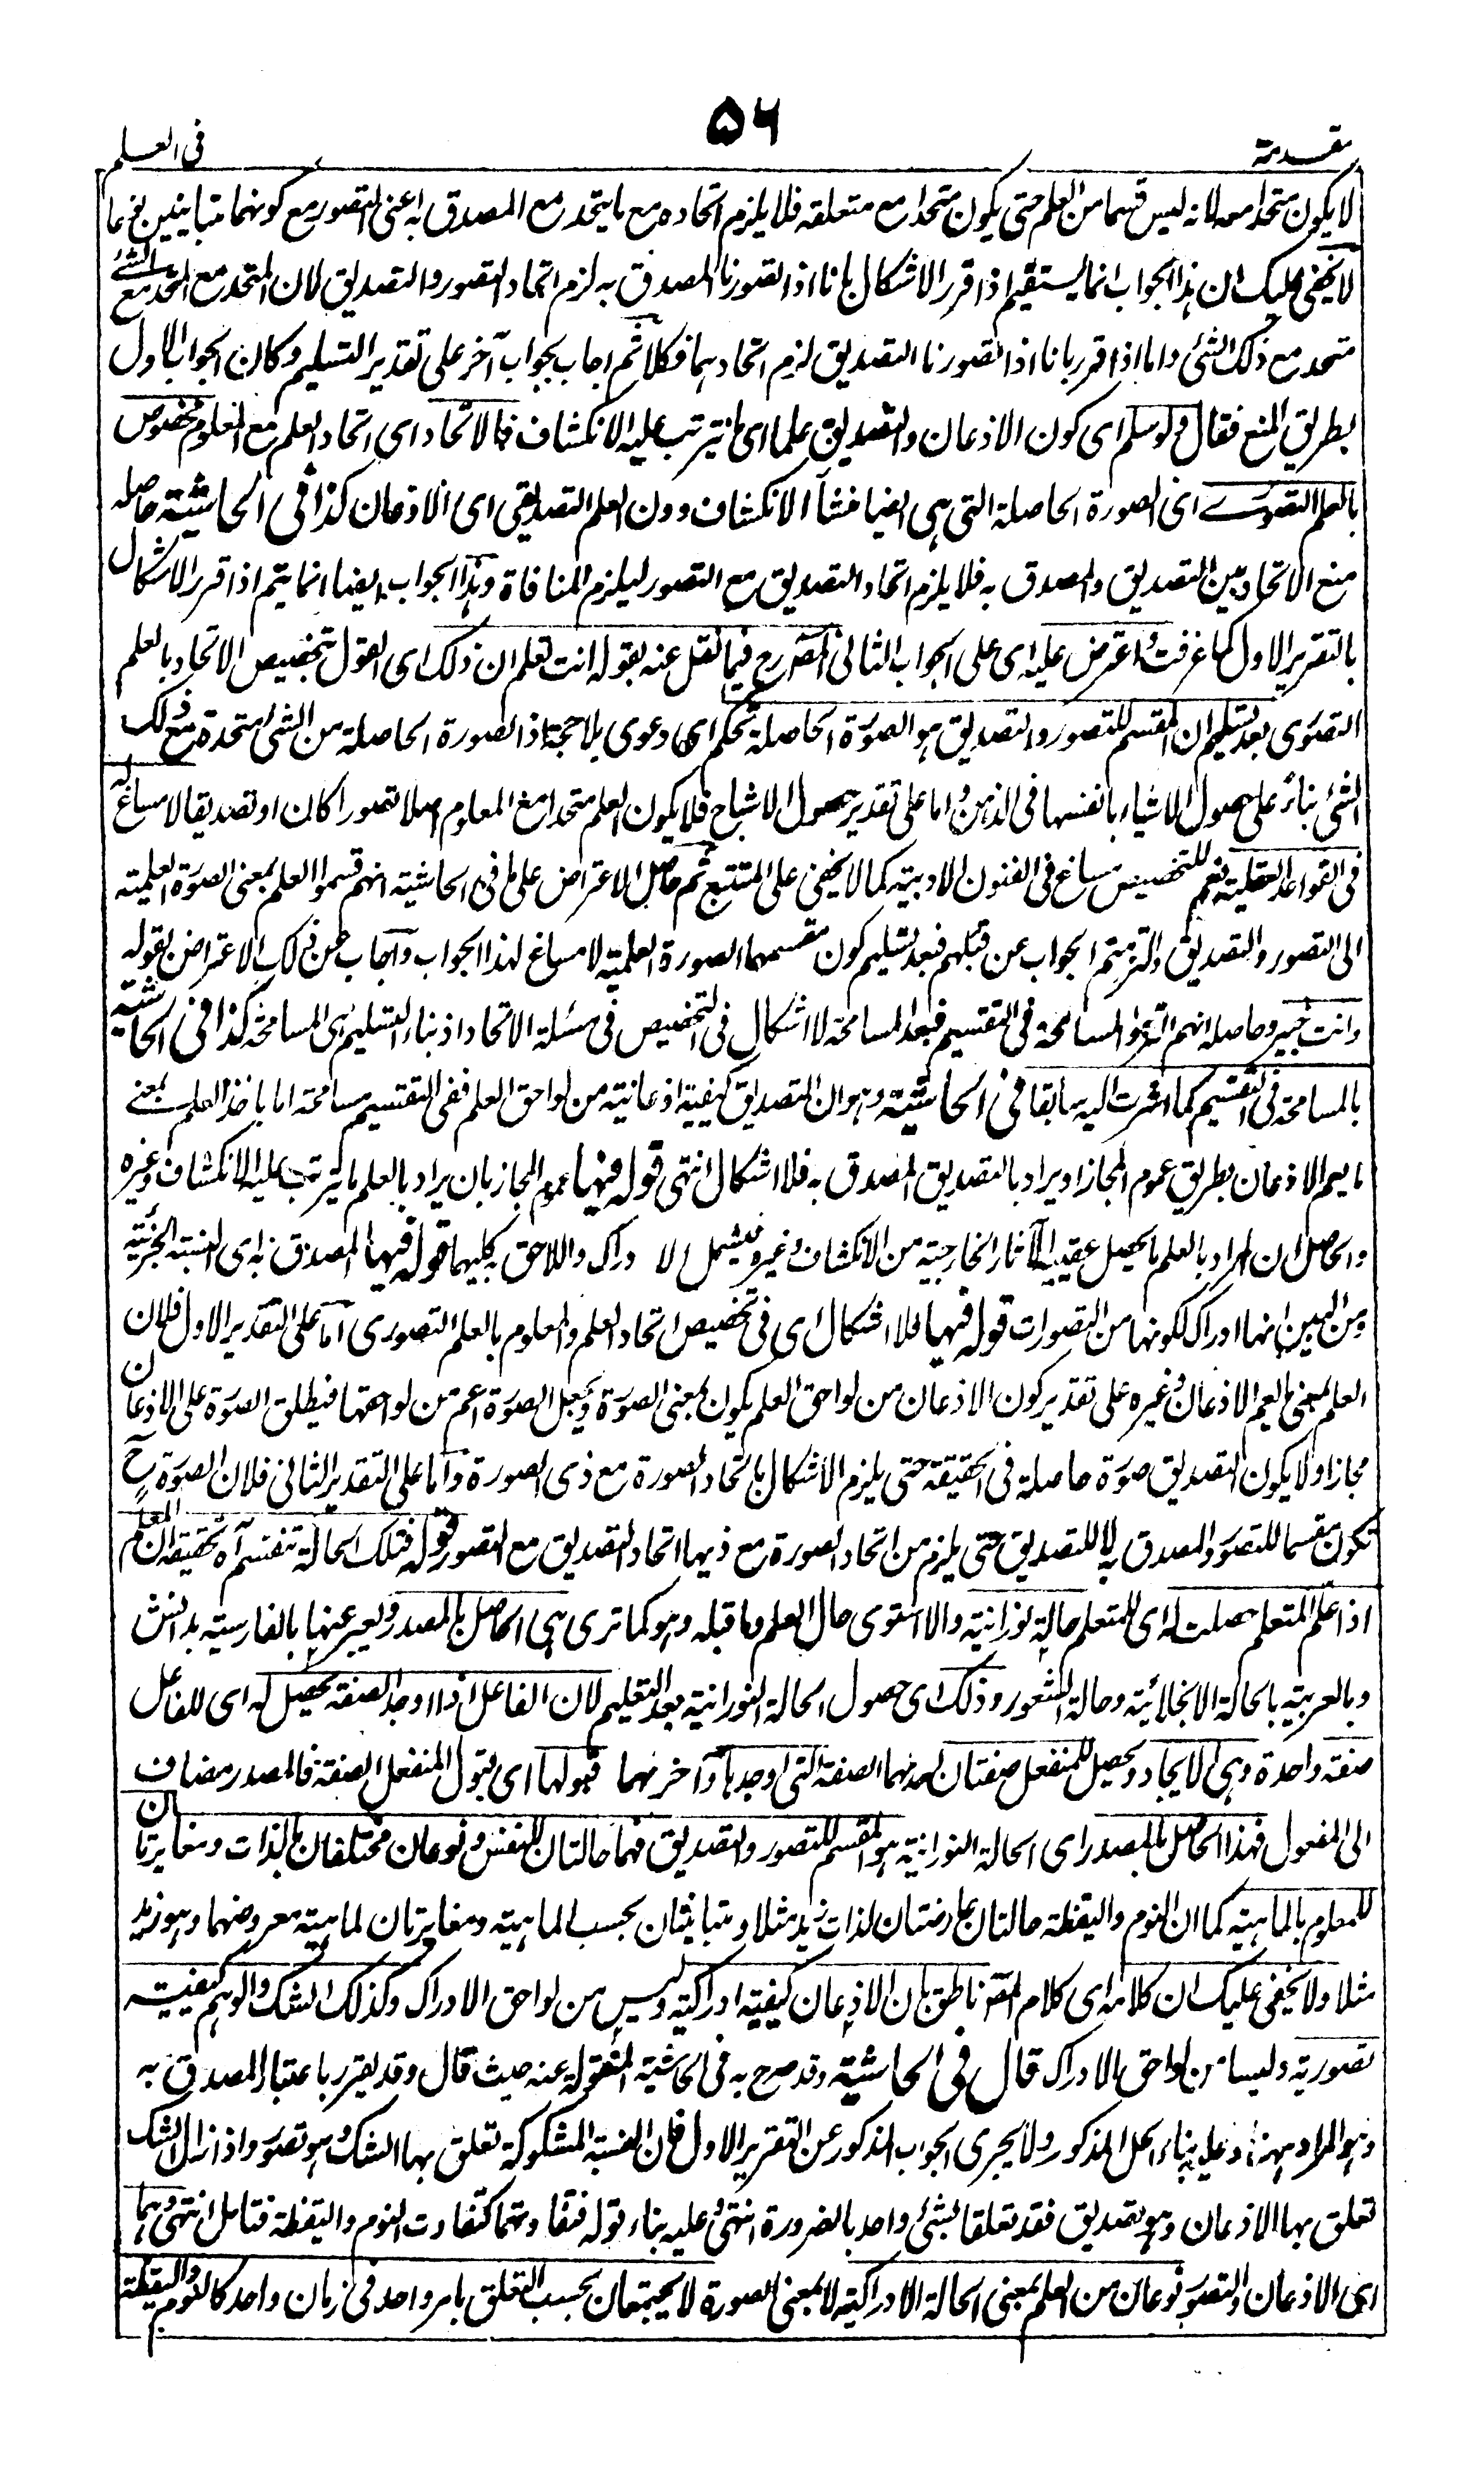 مقدمة
۵۶
فی العلم
لا یکون متحدا معه لانه لیس قسما من العلم حتی یکون متحدا مع متعلقه فلا یلزم اتحاده مع ما یتحد مع المصدق به اعنی التصور مع کونهما متباینین نوعا
لا یخفی علیک ان هذا الجواب انما یستقیم اذا قرر الاشکال بانا اذا تصورنا المصدق به لزم اتحاد التصور والتصدیق لان المتحد مع المتحد مع الشئ
متحد مع ذلک الشئ واما اذا قرر بانا اذا تصورنا التصدیق لزم اتحادهما فکلا ثم اجاب بجواب آخر علی تقدیر التسلیم وکان الجواب الاول
بطریق المنع فقال ولو سلم ای کون الاذعان والتصدیق علما ای ما یترتب علیه الانکشاف فالاتحاد ای اتحاد العلم مع المعلوم مخصوص
بالعلم التصوری ای الصورة الحاصلة التی هی ایضا منشأ الانکشاف دون العلم التصدیقی ای الاذعان کذا فی الحاشیة حاصله
منع الاتحاد بین التصدیق والمصدق به فلا یلزم اتحاد التصدیق مع التصور لیلزم المنافاة وهذا الجواب ایضا انما یتم اذا قرر الاشکال
بالتقریر الاول کما عرفت واعترض علیه ای علی الجواب الثانی المصرح فیما نقل عنه بقوله انت تعلم ان ذلک ای القول بتخصیص الاتحاد بالعلم
التصوری بعد تسلیم ان المقسم للتصور والتصدیق هو الصورة الحاصلة تحکم ای دعوی بلا حجة اذ الصورة الحاصلة من الشئ متحدة مع ذلک
الشئ بناء علی حصول الاشیاء بانفسها فی الذهن واما علی تقدیر حصول الاشباح فلا یکون العلم متحدا مع المعلوم اصلا تصورا کان او تصدیقا لا مساغ له
فی القواعد العقلیة نعم للتخصیص مساغ فی الفنون الادبیة کما لا یخفی علی المتتبع ثم حاصل الاعتراض علی ما فی الحاشیة انهم قسموا العلم بمعنی الصورة العلمیة
الی التصور والتصدیق والتزمتم الجواب عن قبلهم فبعد تسلیم کون مقسمهما الصورة العلمیة لا مساغ لهذا الجواب واجاب عن ذلک الاعتراض بقوله
وانت خبیر وحاصله انهم التزموا المسامحة فی التقسیم فبعد المسامحة لا اشکال فی التخصیص فی مسئلة الاتحاد اذ بناء التسلیم هی المسامحة کذا فی الحاشیة
بالمسامحة فی التقسیم کما اشرت الیه سابقا فی الحاشیة وهو ان التصدیق کیفیة اذعانیة من لواحق العلم ففی التقسیم مسامحة اما باخذ العلم بمعنی
ما یعم الاذعان بطریق عموم المجاز او یراد بالتصدیق المصدق به فلا اشکال انتهی قوله فیها عموم المجاز بان یراد بالعلم ما یترتب علیه الانکشاف وغیره
والحاصل ان المراد بالعلم ما یحصل عقیبه الآثار الخارجیة من الانکشاف وغیره فیشمل الادراک واللاحق به کلیهما قوله فیها المصدق به ای النسبة الجزئیة
ومن البین انها ادراک لکونها من التصورات قوله فیها فلا اشکال ای فی تخصیص اتحاد العلم والمعلوم بالعلم التصوری اما علی التقدیر الاول فلان
العلم بمعنی ما یعم الاذعان وغیره علی تقدیر کون الاذعان من لواحق العلم یکون بمعنی الصورة ویجعل الصورة اعم من لواحقها فیطلق الصورة علی الاذعان
مجازا ولا یکون التصدیق صورة حاصلة فی الحقیقة حتی یلزم الاشکال باتحاد الصورة مع ذی الصورة واما علی التقدیر الثانی فلان الصورة ح
تکون مقسما للتصور والمصدق به لا للتصدیق حتی یلزم من اتحاد الصورة مع ذیها اتحاد التصدیق مع التصور قوله فتلک الحالة تنقسم آه تحقیقه ان المعلم
اذا علم المتعلم حصلت له ای للمتعلم حالة نورانیة والا استوی حال العلم وما قبله وهو کما تری هی الحاصل بالمصدر ویعبر عنها بالفارسیة بدانش
وبالعربیة بالحالة الانجلائیة وحالة الشعور وذلک ای حصول الحالة النورانیة بعد التعلیم لان الفاعل اذا اوجد الصفة یحصل له ای للفاعل
صفة واحدة وهی الایجاد ویحصل للمنفعل صفتان احدهما الصفة التی اوجدها وآخرهما قبولها ای قبول المنفعل الصفة فالمصدر مضاف
الی المفعول فهذا الحاصل بالمصدر ای الحالة النورانیة هو المقسم للتصور والتصدیق فهما حالتان للنفس ونوعان مختلفان بالذات ومغایرتان
للمعلوم بالماهیة کما ان النوم والیقظة حالتان عارضتان لذات زید مثلا ومتباینتان بحسب الماهیة ومغایرتان لماهیة معروضهما وهو زید
مثلا ولا یخفی علیک ان کلامه ای کلام المصنف ناطق بان الاذعان کیفیة ادراکیة ولیس من لواحق الادراک وکذلک الشک والوهم کیفیة
تصوریة ولیسا من لواحق الادراک قال فی الحاشیة وقد صرح به فی الحاشیة المنقولة عنه حیث قال وقد یقرر باعتبار المصدق به
وهو المراد ههنا وعلیه بناء الحل المذکور ولا یجری الجواب المذکور عن التقریر الاول فان النسبة المشکوکة تعلق بها الشک وهو تصور واذا زال الشک
تعلق بها الاذعان وهو تصدیق فقد تعلقا بشئ واحد بالضرورة انتهی وعلیه بناء قوله فتفاوتهما کتفاوت النوم والیقظة فتامل انتهی وهما
ای الاذعان والتصور نوعان من العلم بمعنی الحالة الادراکیة لا بمعنی الصورة لا یجتمعان بحسب التعلق بامر واحد فی زمان واحد کالنوم والیقظة